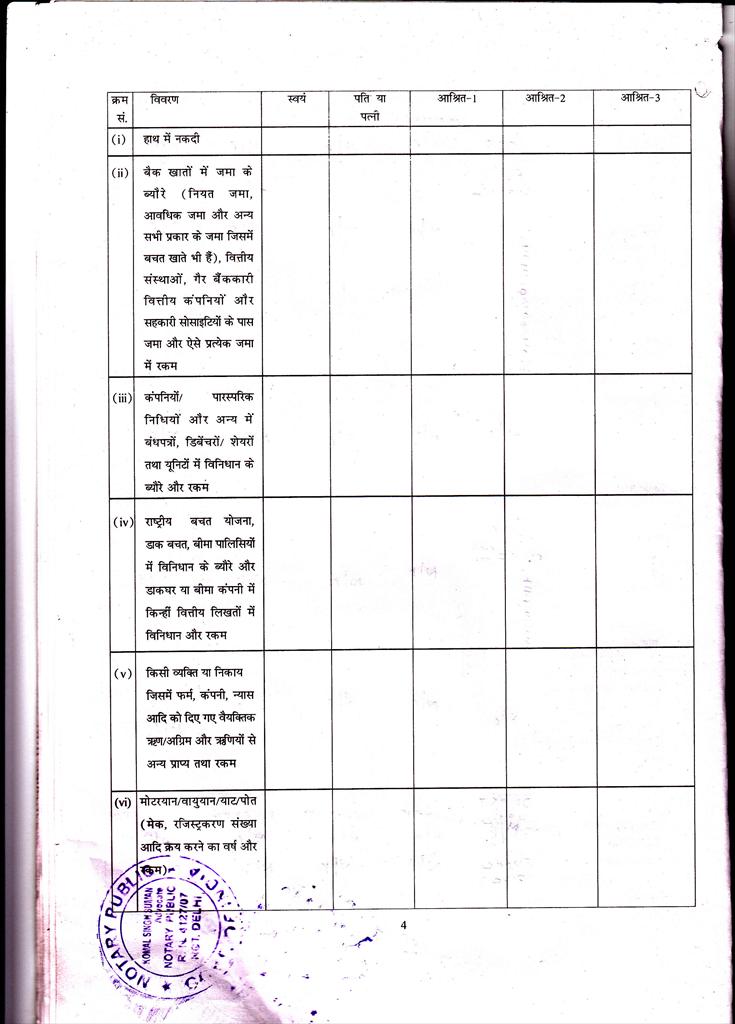 क्रम सं. विवरण स्वयं पति या पत्नी आश्रित-1 आश्रित-2 आश्रित-3
(i) हाथ में नकदी
(ii) बैक खातों में जमा के
ब्यौरे (नियत जमा,
आवधिक जमा और अन्य
सभी प्रकार के जमा जिसमें
बचत खाते भी हैं), वित्तीय
संस्थाओं, गैर बैंककारी
वित्तीय कंपनियों और
सहकारी सोसाइटियों के पास
जमा और ऐसे प्रत्येक जमा
में रकम
(iii) कंपनियों/ पारस्परिक
निधियों और अन्य में
बंधपत्रों, डिबेंचरों/ शेयरों
तथा यूनिटों में विनिधान के
ब्यौरे और रकम
(iv) राष्ट्रीय बचत योजना,
डाक बचत, बीमा पालिसियों
में विनिधान के ब्यौरे और
डाकघर या बीमा कंपनी में
किन्हीं वित्तीय लिखतों में
विनिधान और रकम
(v) किसी व्यक्ति या निकाय
जिसमें फर्म, कंपनी, न्यास
आदि को दिए गए वैयक्तिक
ऋण/अग्रिम और ऋणियों से
अन्य प्राप्य तथा रकम
(vi) मोटरयान/वायुयान/याट/पोत
(मेक, रजिस्ट्रकरण संख्या
आदि क्रय करने का वर्ष और
रकम)
NOTARY PUBLIC
KOMAL SINGH
Advocate
NOTARY PUBLIC
4127/07
DELHI
4